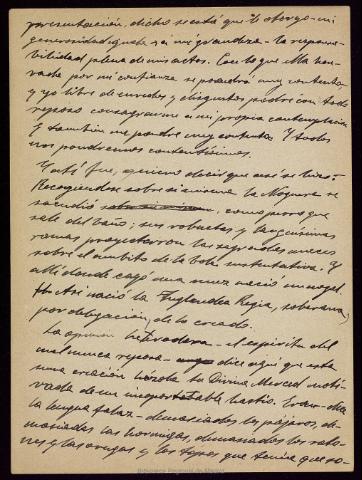 presentación, dicho se está que le otorgo – mi
generosidad iguala a mi grandeza – la respon-
sabilidad plena de mis actos. Con lo que ella hon-
rada por mi confianza se pondrá muy contenta,
y yo libre de enredos y disgustos podré con todo
reposo consagrarme a mi propia contemplación
y también me pondré muy contento. Y todos
nos pondremos contentísimos.
Y así fue, quiero decir que así se hizo.
Recogiéndose sobre sí misma la Noguera se
sacudió como perro que
sale del baño; sus robustas y larguísimas
ramas proyectaron las sagradas nueces
sobre el ámbito de la bola sustentativa. Y
allí donde cayó una nuez nació un nogal.
Así nació la Juglandea Regia, soberana,
por delegación, de lo creado.
La opinión heterodoxa – el espíritu del
mal nunca reposa – dice aquí que esta
una creación hízola la Divina Merced moti-
vada de un insoportable hastío. Eran – dice
la lengua falaz – demasiados los pájaros, de-
masiadas las hormigas, demasiados los rato-
nes y las orugas y los topos que tenía que so-
Biblioteca Regional de Murcia